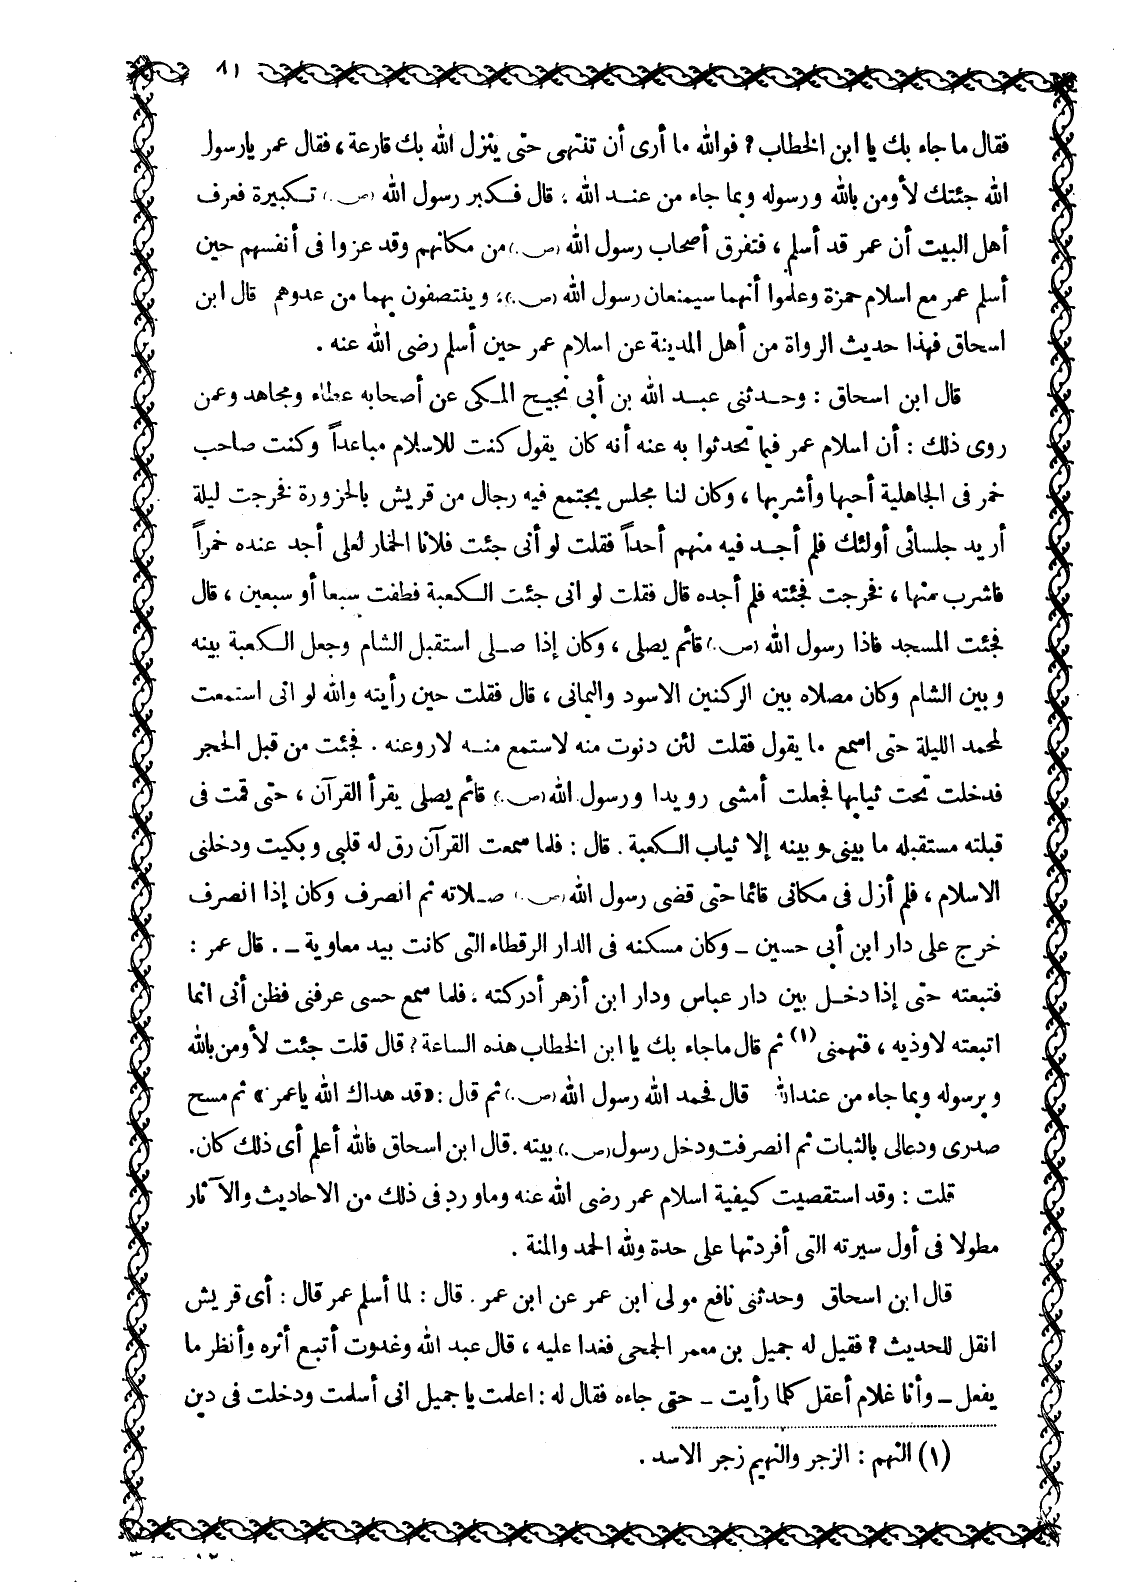 ٨١
فقال ما جاء بك يا ابن الخطاب؟ فوالله ما أرى أن تنتهى حتى ينزل الله بك قارعة ، فقال عمر يارسول
الله جئتك لأومن بالله ورسوله وبما جاء من عند الله ، قال فكبر رسول الله (ص.) تكبيرة فعرف
أهل البيت أن عمر قد أسلم ، فتفرق أصحاب رسول الله (ص.) من مكانهم وقد عزوا فى أنفسهم حين
أسلم عمر مع اسلام حمزة وعلموا أنهما سيمنعان رسول الله (ص.)، وينتصفون بهما من عدوهم قال ابن
اسحاق فهذا حديث الرواة من أهل المدينة عن اسلام عمر حين أسلم رضى الله عنه .
قال ابن اسحاق : وحدثنى عبد الله بن أبى نجيح المكى عن أصحابه عطاء ومجاهد وعمن
روى ذلك : أن اسلام عمر فيما تحدثوا به عنه أنه كان يقول كنت للاسلام مباعداً وكنت صاحب
خمر فى الجاهلية أحبها وأشربها ، وكان لنا مجلس يجتمع فيه رجال من قريش بالحزورة فخرجت ليلة
أريد جلسائى أولئك فلم أجد فيه منهم أحداً فقلت لو أنى جئت فلانا الخمار لعلى أجد عنده خمراً
فاشرب منها ، فخرجت فجئته فلم أجده قال فقلت لو انى جئت الكعبة فطفت سبعا أو سبعين ، قال
فجئت المسجد فاذا رسول الله (ص.) قائم يصلى ، وكان إذا صلى استقبل الشام وجعل الكعبة بينه
وبين الشام وكان مصلاه بين الركنين الاسود واليمانى ، قال فقلت حين رأيته والله لو انى استمعت
لمحمد الليلة حتى اسمع ما يقول فقلت لئن دنوت منه لاستمع منه لاروعنه . فجئت من قبل الحجر
فدخلت تحت ثيابها فجعلت أمشى رويدا ورسول الله (ص.) قائم يصلى يقرأ القرآن ، حتى قمت فى
قبلته مستقبله ما بينى وبينه إلا ثياب الكعبة . قال : فلما سمعت القرآن رق له قلبى وبكيت ودخلنى
الاسلام ، فلم أزل فى مكانى قائما حتى قضى رسول الله (ص.) صلاته ثم انصرف وكان إذا انصرف
خرج على دار ابن أبى حسين ـ وكان مسكنه فى الدار الرقطاء التى كانت بيد معاوية ـ . قال عمر :
فتبعته حتى إذا دخل بين دار عباس ودار ابن أزهر أدركته ، فلما سمع حسى عرفنى فظن أنى انما
اتبعته لاوذيه ، فنهمنى (١) ثم قال ماجاء بك يا ابن الخطاب هذه الساعة ؟ قال قلت جئت لأومن بالله
وبرسوله وبما جاء من عند الله قال فحمد الله رسول الله (ص.) ثم قال : «قد هداك الله ياعمر» ثم مسح
صدرى ودعالى بالثبات ثم انصرفت ودخل رسول (ص.) بيته . قال ابن اسحاق فالله أعلم أى ذلك كان.
قلت : وقد استقصيت كيفية اسلام عمر رضى الله عنه وماورد فى ذلك من الاحاديث والآثار
مطولا فى أول سيرته التى أفردتها على حدة ولله الحمد والمنة .
قال ابن اسحاق وحدثنى نافع مولى ابن عمر عن ابن عمر . قال : لما أسلم عمر قال : أى قريش
انقل للحديث ؟ فقيل له جميل بن معمر الجمحى فغدا عليه ، قال عبد الله وغدوت أتبع أثره وأنظر ما
يفعل ـ وأنا غلام أعقل كلما رأيت ـ حتى جاءه فقال له : اعلمت يا جميل انى أسلمت ودخلت فى دين
(١) النهم : الزجر والنهيم زجر الاسد .